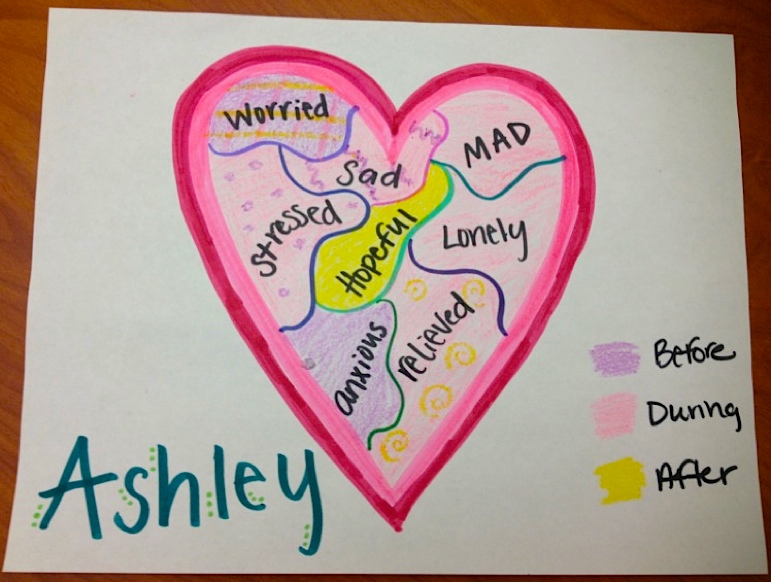 Worried
Sad
MAD
Stressed
Hopeful
Lonely
anxious
relieved
Before
During
After
Ashley